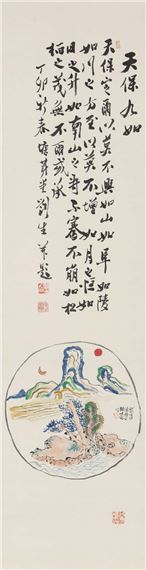 天保九如
天保定爾以莫不興如山如阜如陵
如川之方至以莫不增如月之恒如
日之升如南山之壽不騫不崩如松
柏之茂無不爾或承
丁卯新春劉生題